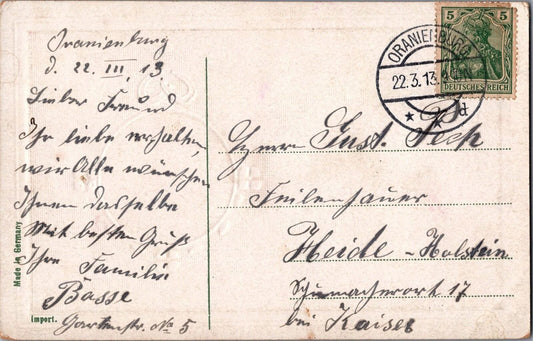 Oranienburg
d. 22. III, 13.
Lieber Freund
Ihr liebe erhalten,
wir Alle wünschen
Ihnen dasselbe
Mit besten Gruß
Ihre Familie
Basse
Gartenstr. No 5
Made in Germany
Import.
5 5
DEUTSCHES REICH
ORANIENBURG
22.3.13.
* d
Herrn Gust. Peck
Feilenhauer
Heide - Holstein
Schumacherort 17
bei Kaiser